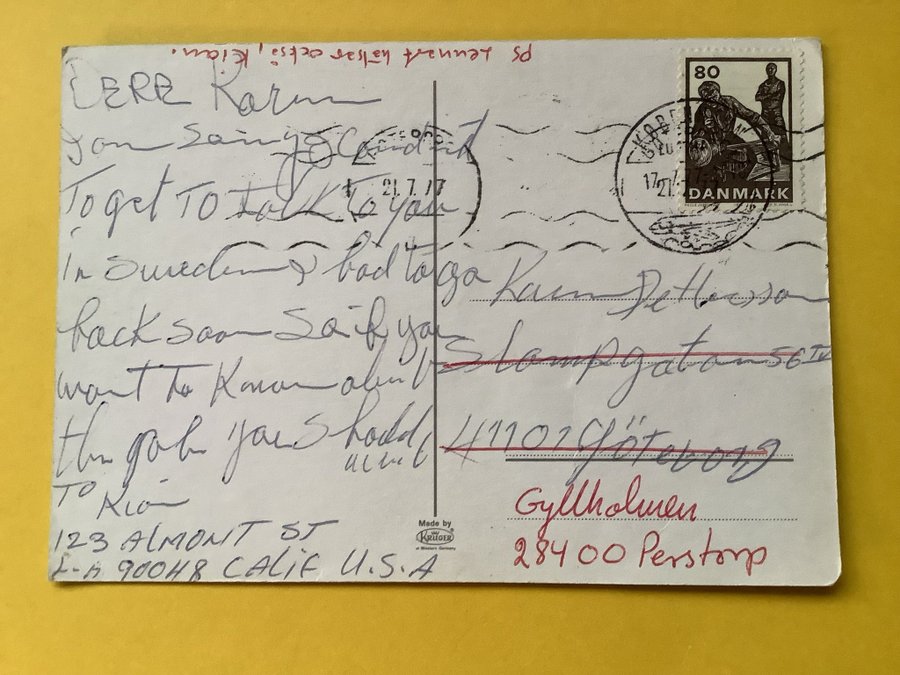 DERE Karin
I am sorry I couldnt
To get To talk to you
in Sweden I had to go
back soon So if you
want to Know about
the job you should
write
To Kian
123 ALMONT ST
L-A 90048 CALIF U.S.A
PS Lennart hälsar också, Kian.
80
DANMARK
21.7.77
Karin Pettersson
Slampgatan 56 IV
41101 Göteborg
Gyllholmen
28400 Perstorp
Made by
KRÜGER
in Western Germany